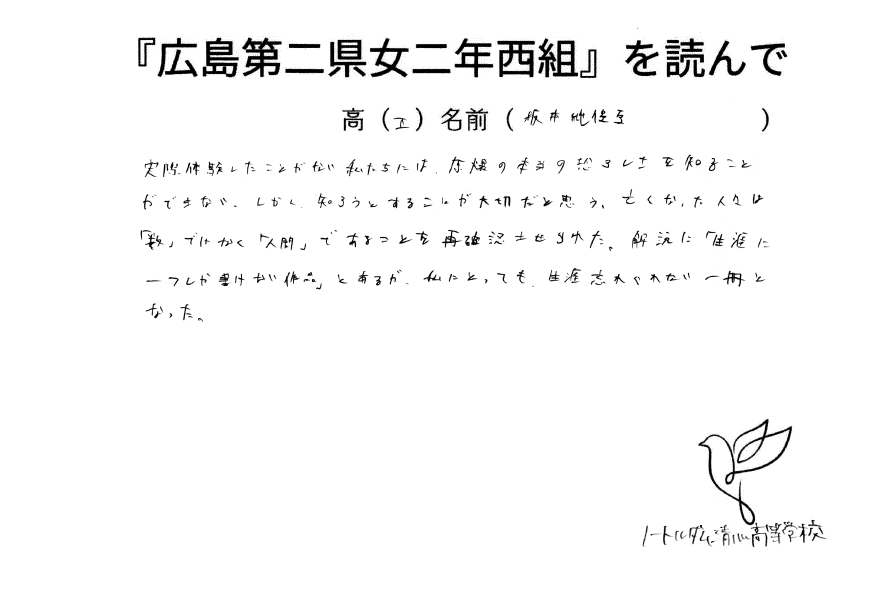 『広島第二県女二年西組』を読んで
高（II）名前（坂本 ）
実際体験したことがない私たちには、原爆の本当の恐ろしさを知ること
ができない。しかし、知ろうとすることが大切だと思う。亡くなった人々は
「数」ではなく「人間」であることを再確認させられた。解説に「生涯に
一つしか書けない作品」とあるが、私にとっても、生涯忘れられない一冊と
なった。
ノートルダム清心高等学校